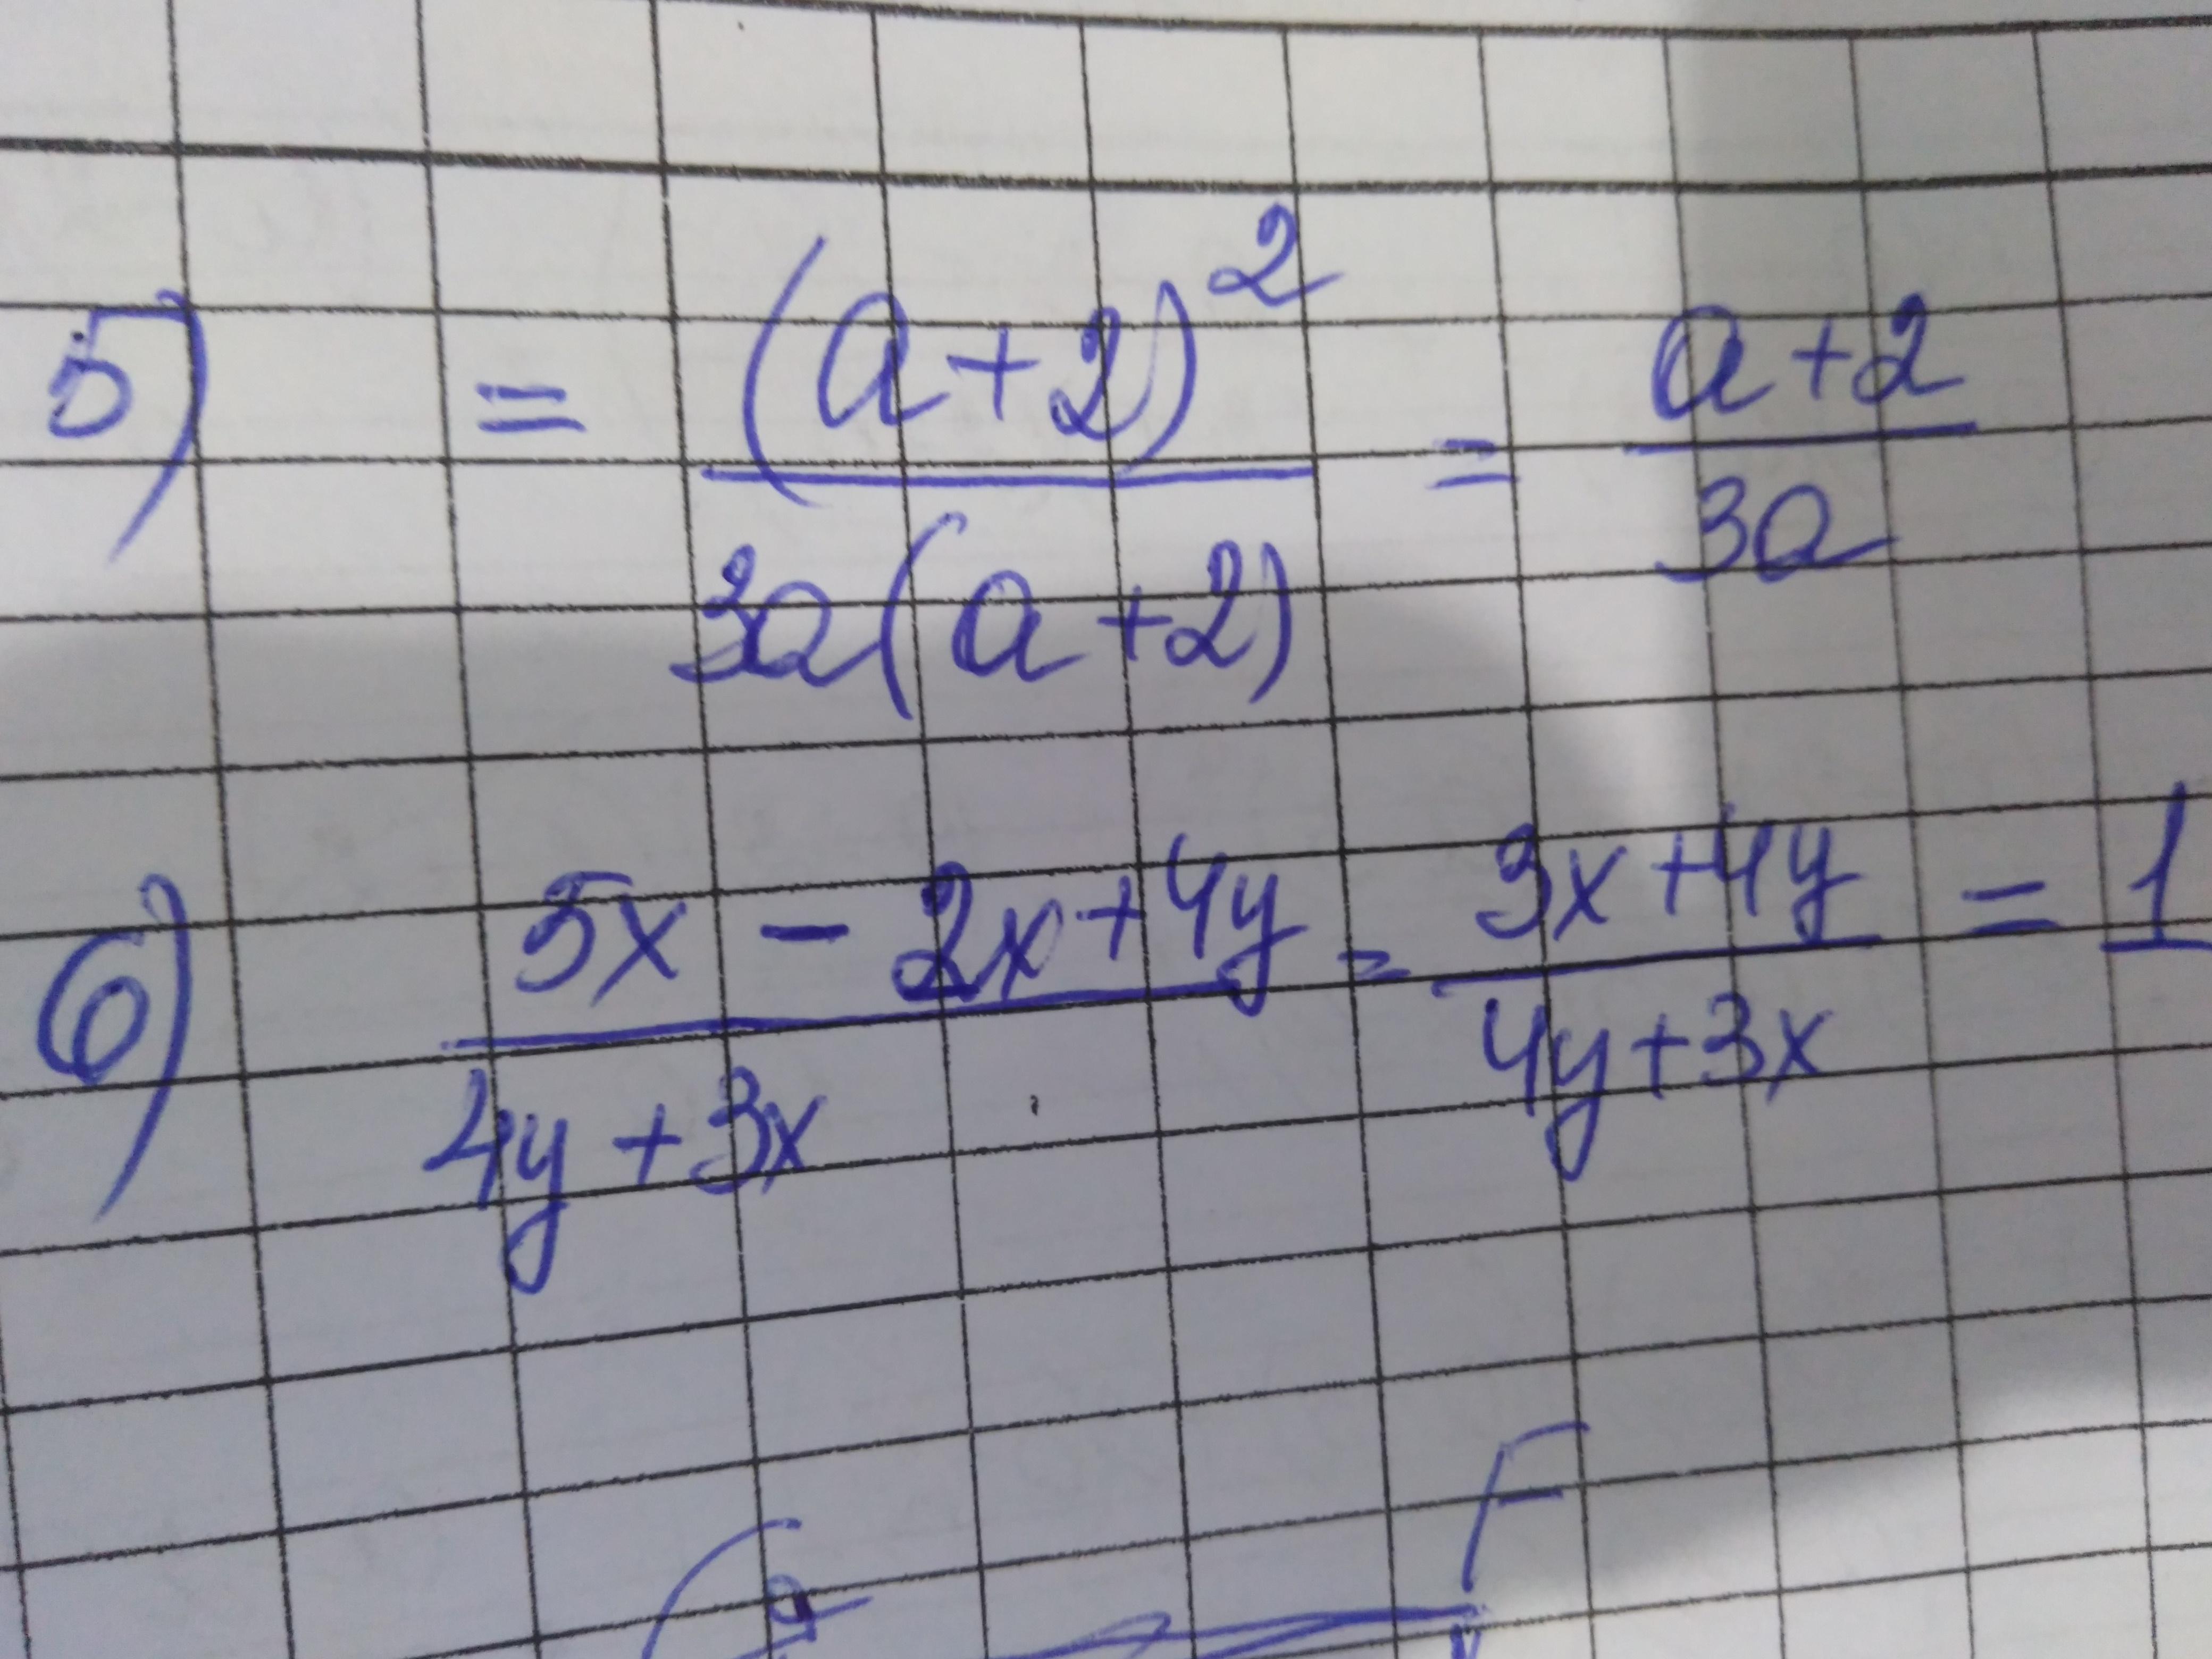 5) = (a+2)² / 3a(a+2) = a+2 / 3a
6) 5x - 2x+4y / 4y+3x = 3x+4y / 4y+3x = 1